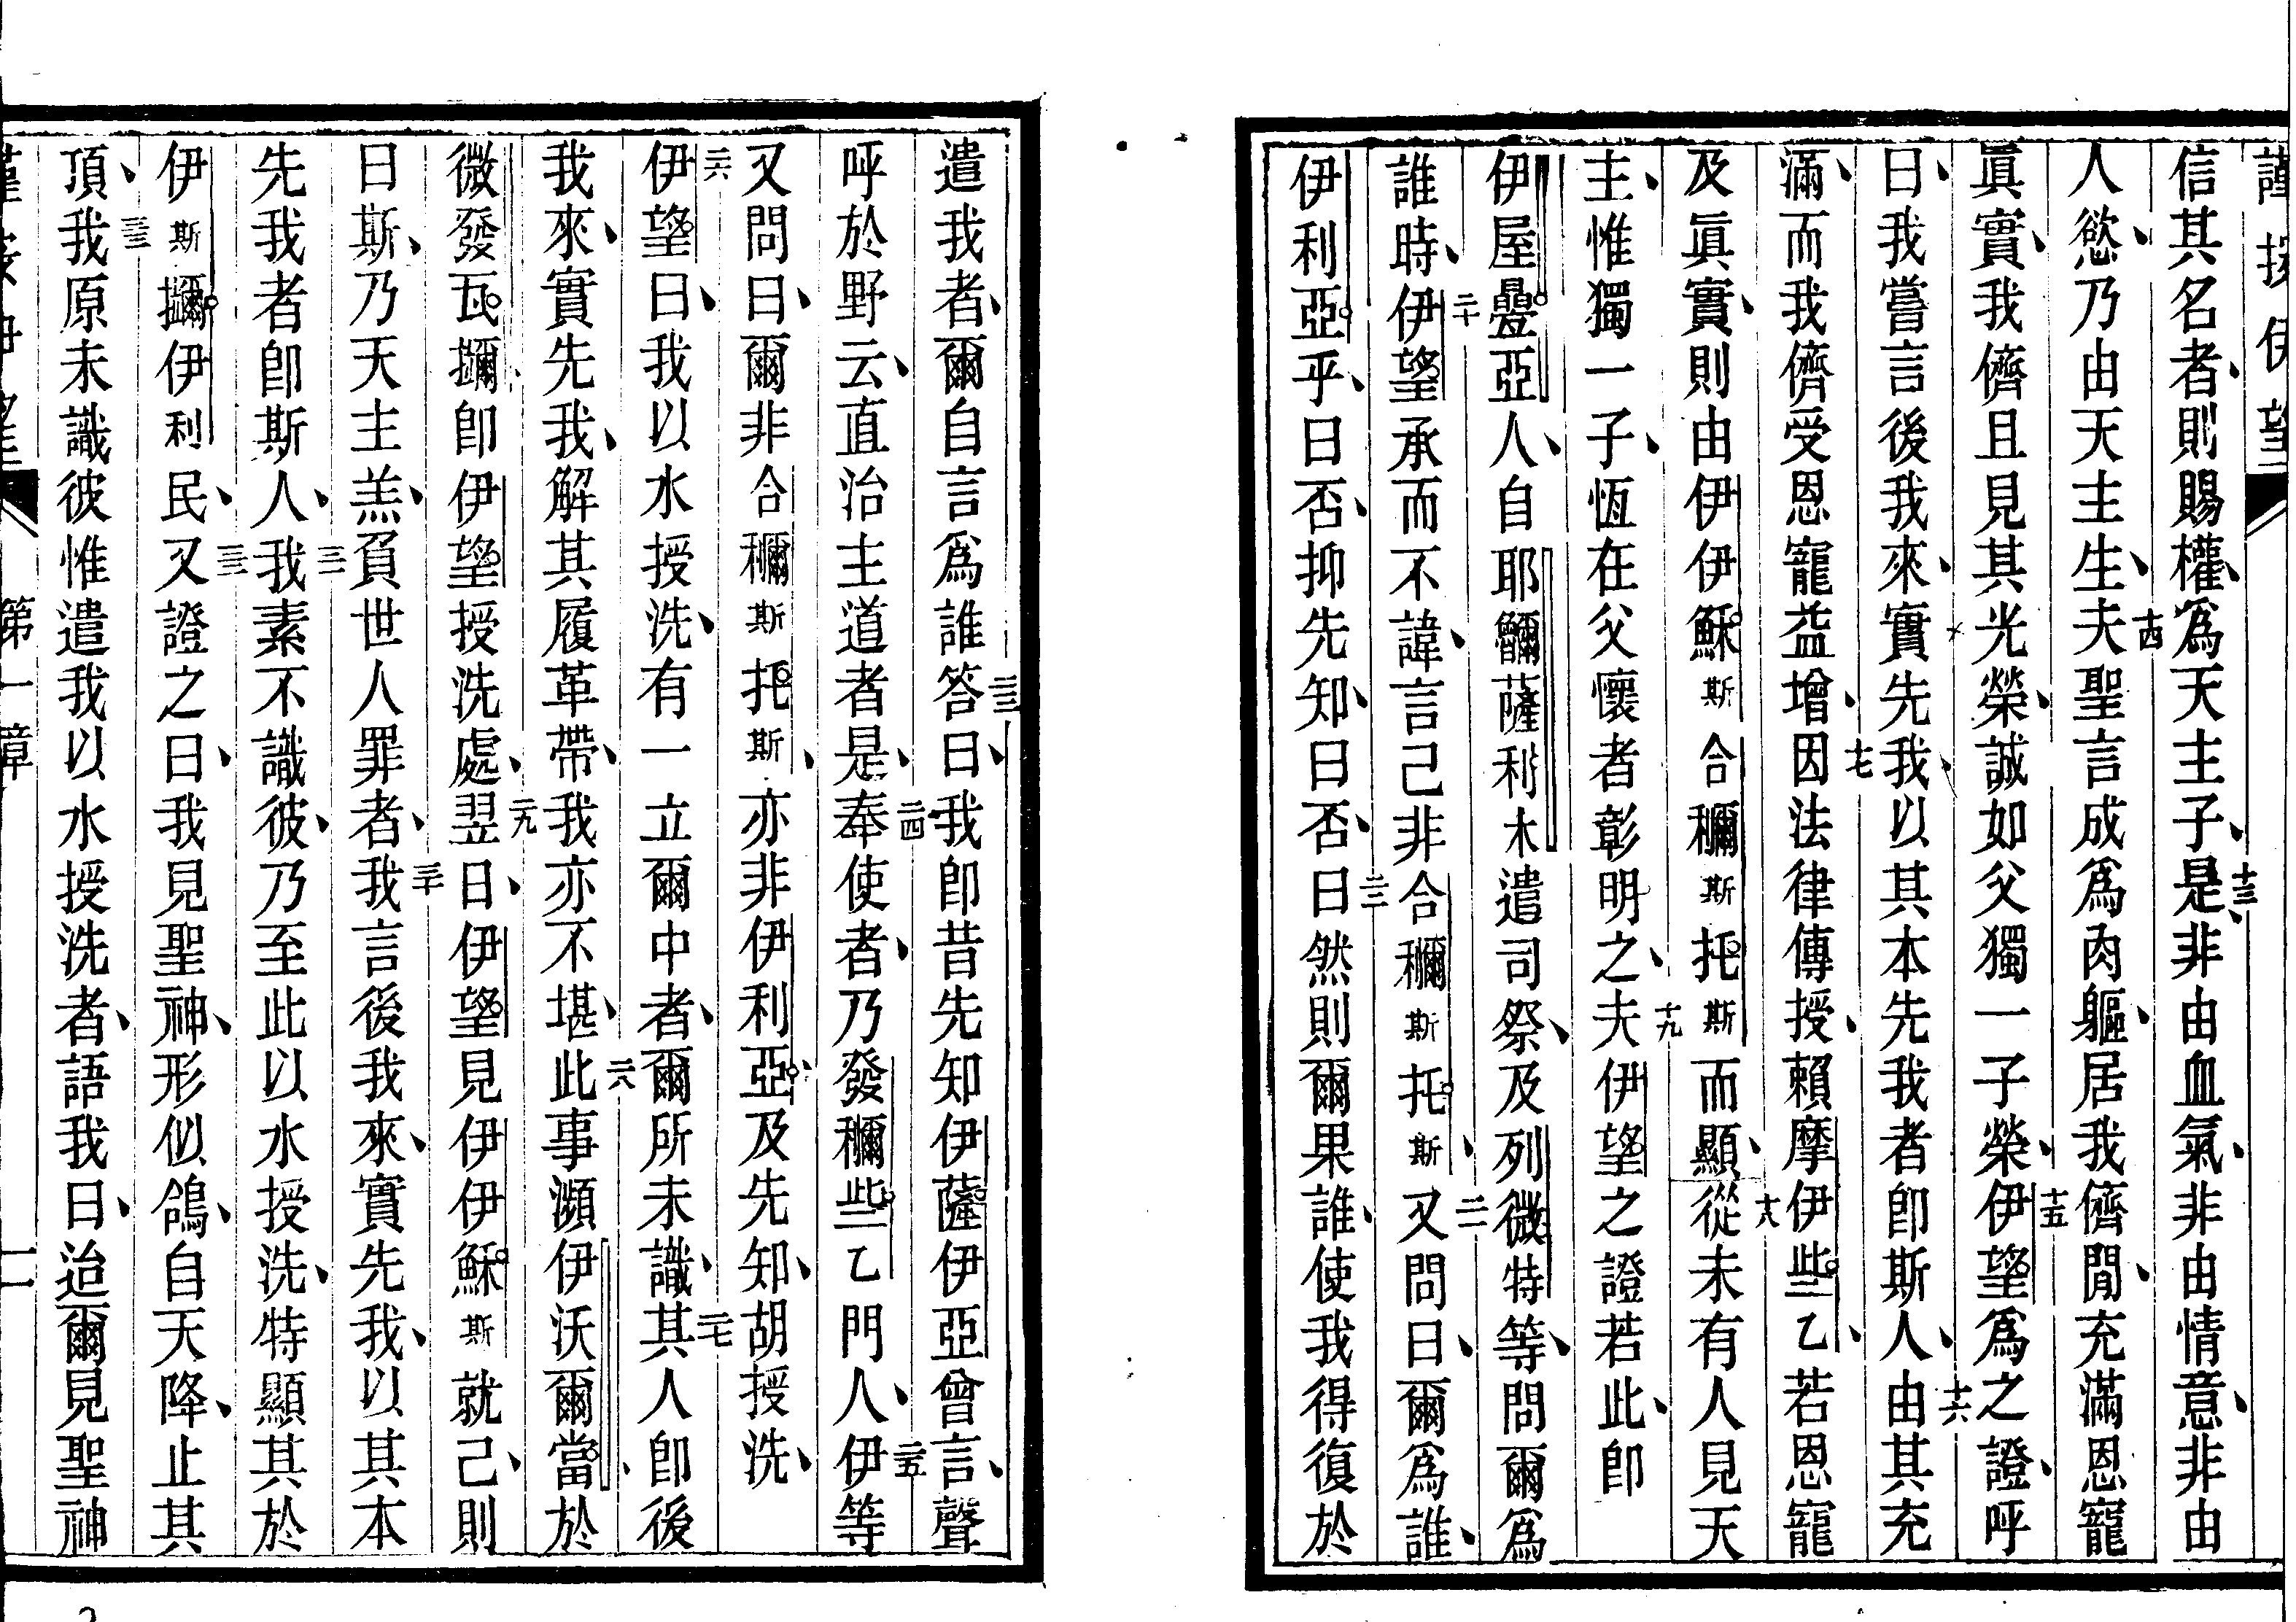 信其名者、則賜權、爲天主子、十三是、非由血氣、非由情意、非由
人慾、乃由天主生、十四夫聖言成爲肉軀、居我儕閒、充滿恩寵
眞實、我儕且見其光榮、誠如父獨一子榮、十五伊望爲之證、呼
曰、我嘗言後我來、實先我、以其本先我者卽斯人、十六由其充
滿、而我儕受恩寵益增、十七因法律傳授、賴摩伊些乙、若恩寵
及眞實、則由伊伊穌斯合穪斯托斯而顯、十八從未有人見天
主、惟獨一子、恆在父懷者彰明之、十九夫伊望之證若此、卽
伊屋疊亞人、自耶𠆩薩利木遣司祭、及列微特等、問爾爲
誰時、二十伊望承而不諱、言己非合穪斯托斯、二一又問曰、爾爲誰、
伊利亞乎、曰否、抑先知、曰否、二二曰然則爾果誰、使我得復於
遣我者、爾自言爲誰、二三答曰、我卽昔先知伊薩伊亞曾言、聲
呼於野云、直治主道者是、二四奉使者、乃發穪些乙門人、二五伊等
又問曰、爾非合穪斯托斯、亦非伊利亞、及先知、胡授洗、
二六伊望曰、我以水授洗、有一立爾中者、爾所未識、二七其人卽後
我來、實先我、解其履革帶、我亦不堪、二八此事瀕伊沃爾當於
微發瓦攡、卽伊望授洗處、二九翌日、伊望見伊伊穌斯就己、則
曰斯、乃天主羔、負世人罪者、三十我言後我來、實先我、以其本
先我者卽斯人、三一我素不識彼、乃至此以水授洗、特顯其於
伊斯攡伊利民、三二又證之曰、我見聖神、形似鴿、自天降、止其
頂、三三我原未識彼、惟遣我以水授洗者、語我曰、迨爾見聖神
第一章
二